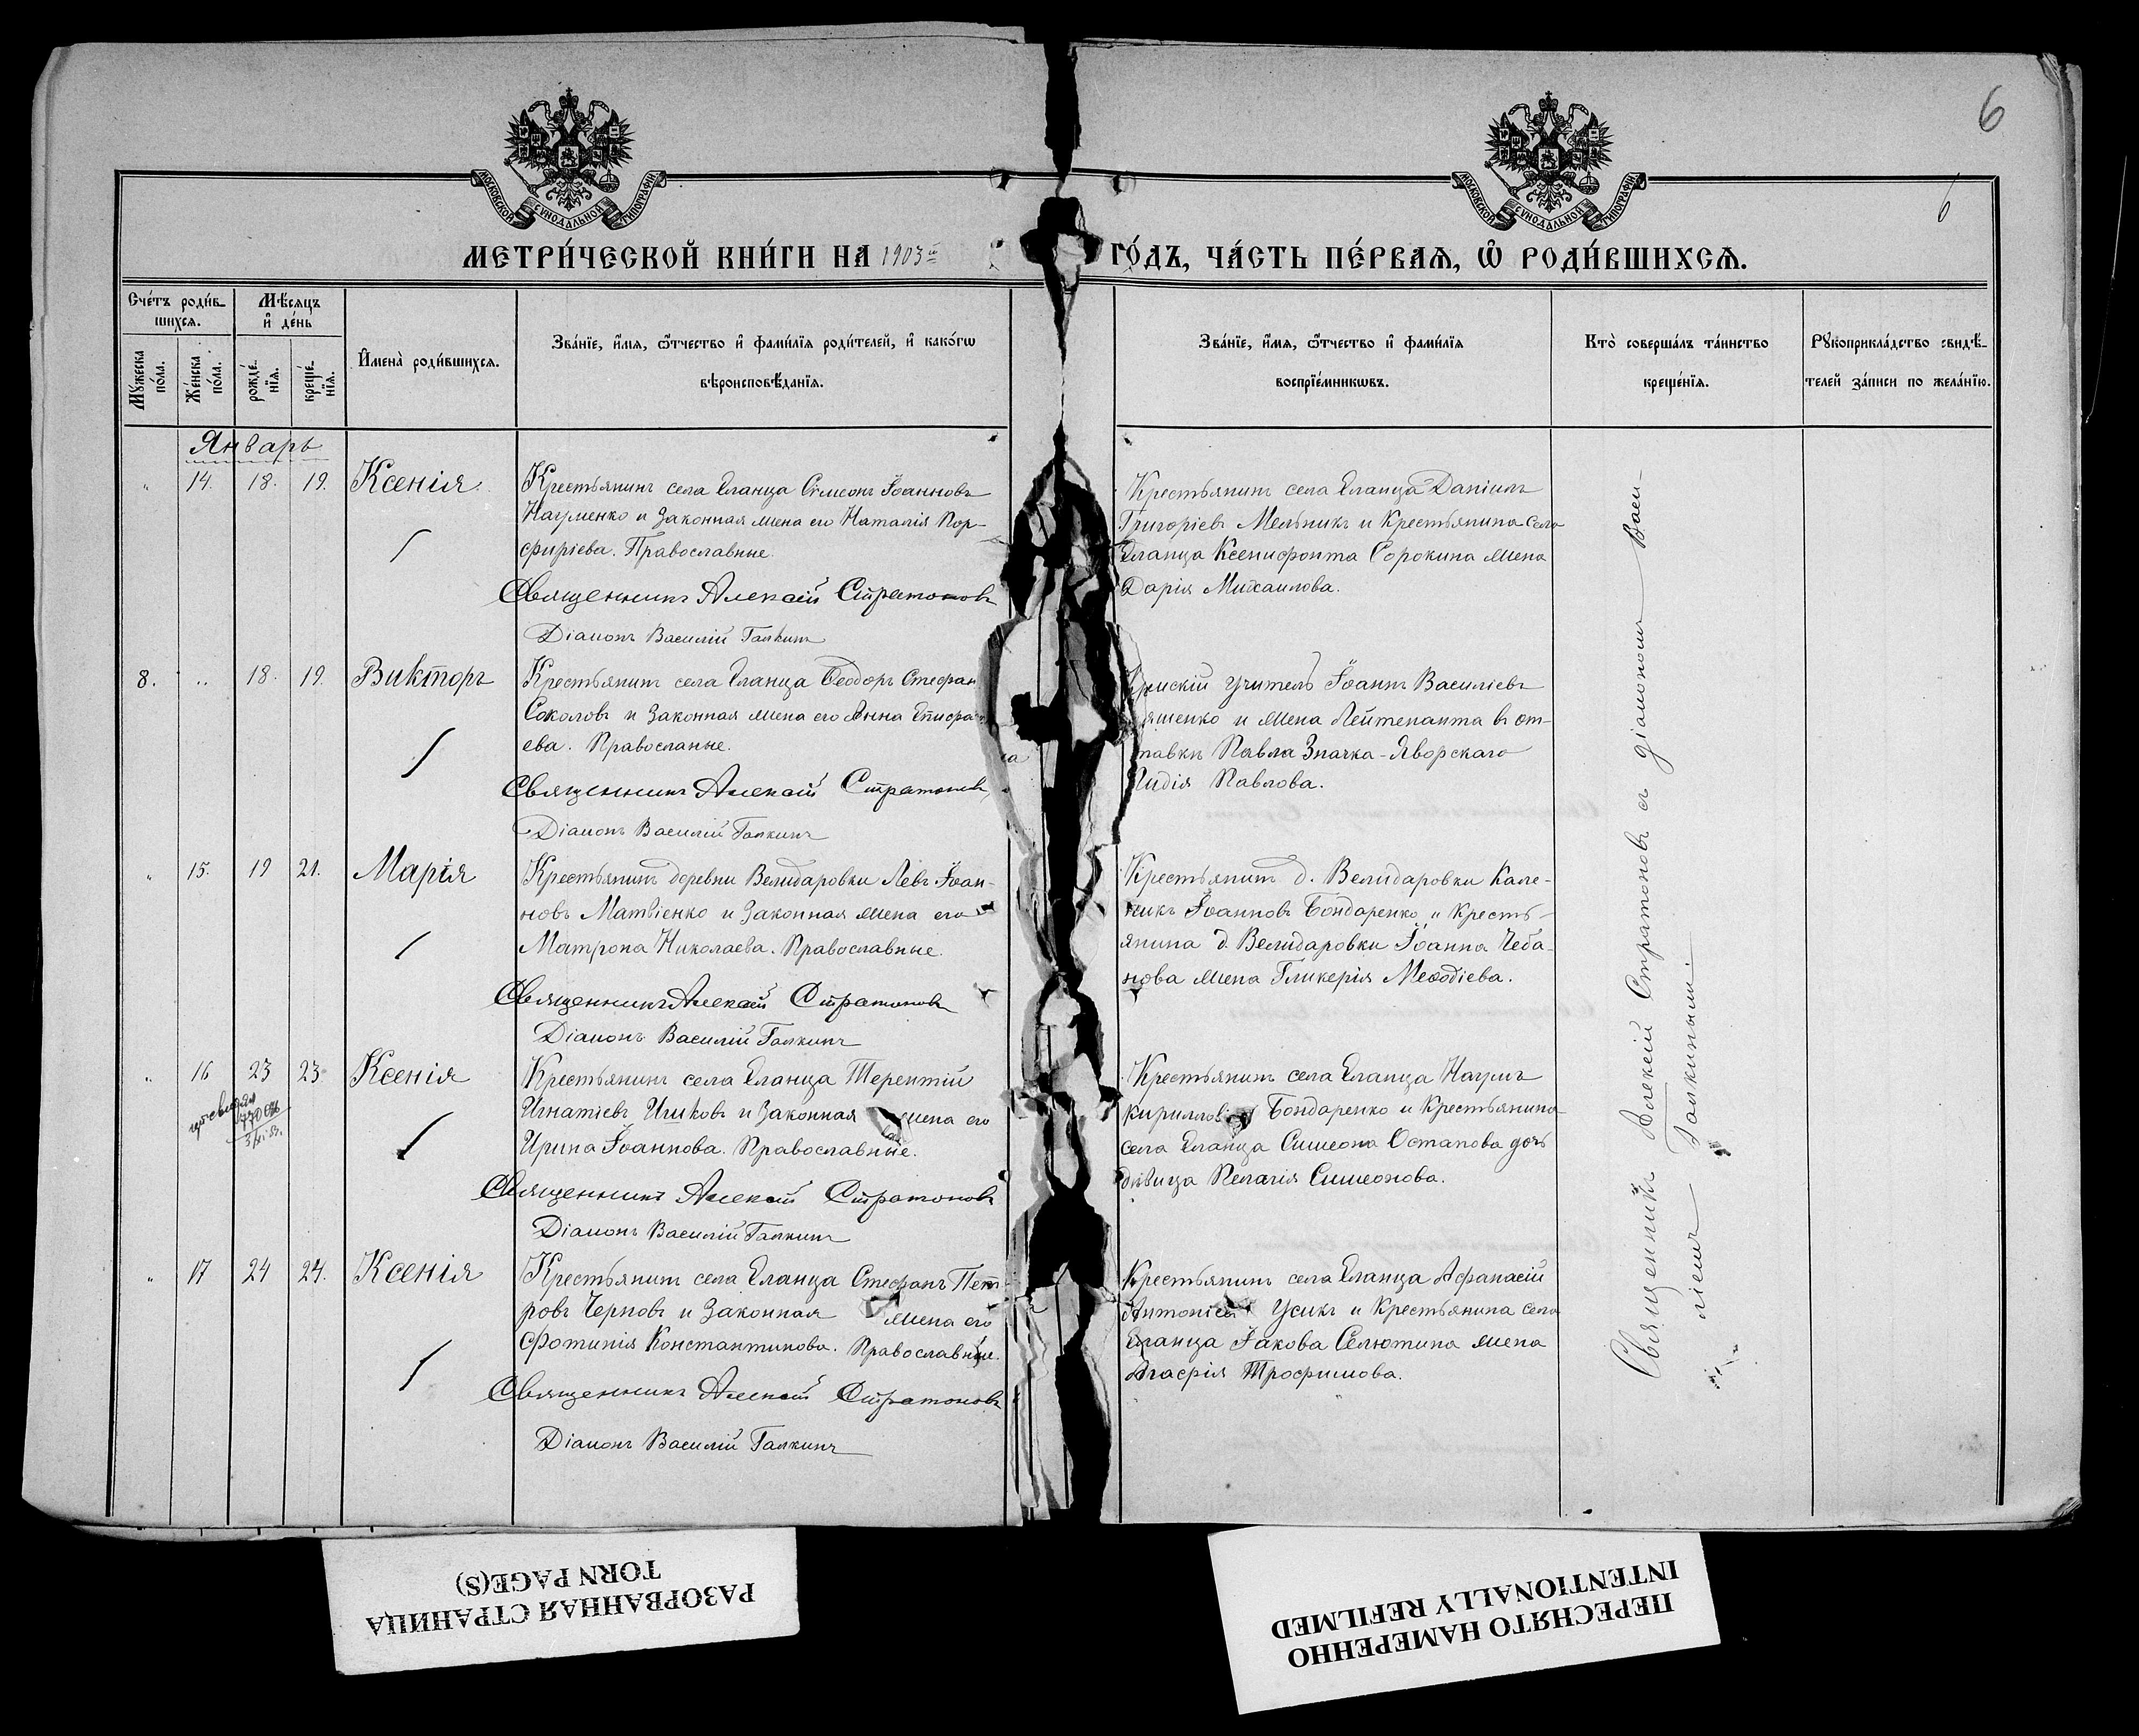 6
6
МОСКОВСКОЙ СУНОДАЛЬНОЙ ТИПОГРАФИИ
МОСКОВСКОЙ СУНОДАЛЬНОЙ ТИПОГРАФИИ
МЕТРИ́ЧЕСКОЙ КНИ́ГИ НА 1903й ГО́ДЪ, ЧА́СТЬ ПЕ́РВАѦ, Ѡ҆ РОДИ́ВШИХСѦ.
Сче́тъ роди́в-
шихсѧ.
Мѣ́сѧцъ
и҆ де́нь
Мꙋжеска по́ла.
Же́нска по́ла.
рожде́-
нїѧ.
креще́-
нїѧ.
И҆мена̀ роди́вшихсѧ.
Зва́нїе, и҆́мѧ, ѻ҆́тчество и҆ фами́лїѧ роди́телей, и҆ како́гѡ
вѣроисповѣ́данїѧ.
Зва́нїе, и҆́мѧ, ѻ҆́тчество и҆ фами́лїѧ
воспрїе́мникѡвъ.
Кто̀ соверша́лъ та́инство
креще́нїѧ.
Рꙋкоприкла́дство свидѣ́-
телей за́писи по жела́нїю.
Январь
" 14. 18. 19. Ксенія
Крестьянинъ села Еланца Симеонъ Іоанновъ
Науменко и законная жена его Наталія Пор-
фиріева. Православные.
Священникъ Алексій Стратоновъ
Діаконъ Василій Галкинъ
Крестьянинъ села Еланца Даніилъ
Григоріевъ Мельникъ и крестьянина села
Еланца Ксенифонта Сорокина жена
Дарія Михаилова.
8. " 18. 19. Викторъ
Крестьянинъ села Еланца Ѳеодоръ Стефан
Соколовъ и законная жена его Анна
ева. Правосланые.
Священникъ Алексій Стратоновъ
Діаконъ Василій Галкинъ
учитель Іоаннъ Василіевъ
яшенко и жена Лейтенанта въ от-
тавкѣ Павла Значка-Яворскаго
Лидія Павлова.
" 15. 19 21. Марія
Крестьянинъ деревни Велидаровки Левъ Іоан-
новъ Матвіенко и законная жена его
Матрона Николаева. Православные.
Священникъ Алексій Стратоновъ
Діаконъ Василій Галкинъ
Крестьянинъ д. Велидаровки Кале-
никъ Іоанновъ Бондаренко и кресть-
янина д. Велидаровки Іоанна Чеба-
нова жена Гликерія Меѳодіева.
" 16 23 23 Ксенія
Крестьянинъ села Еланца Терентій
Игнатіевъ и законная жена его
Ирина Іоаннова. Православные.
Священникъ Алексій Стратоновъ
Діаконъ Василій Галкинъ
Крестьянинъ села Еланца Наумъ
Кирилловъ Бондаренко и крестьянина
села Еланца Симеона Остапова дочь
дѣвица Пелагія Симеонова.
" 17 24 24. Ксенія
Крестьянинъ села Еланца Стефанъ Пет-
ровъ Черновъ и законная жена его
Фотинія Константинова. Православные.
Священникъ Алексій Стратоновъ
Діаконъ Василій Галкинъ
Крестьянинъ села Еланца Афанасій
Антоніевъ Усикъ и крестьянина села
Еланца Іакова Селютина жена
Агафія Трофимова.
Священникъ Алексій Стратоновъ съ діакономъ Васи-
ліемъ Галкинымъ.
РАЗОРВАННАЯ СТРАНИЦА
TORN PAGE(S)
ПЕРЕСНЯТО НАМЕРЕННО
INTENTIONALLY REFILMED